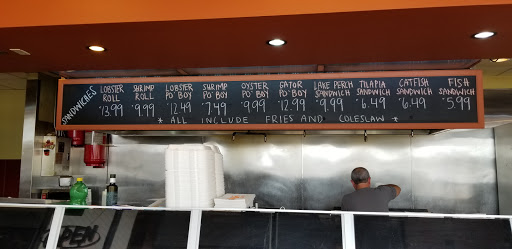 SANDWICHES
LOBSTER ROLL $13.99
SHRIMP ROLL $9.99
LOBSTER PO' BOY $12.49
SHRIMP PO' BOY $7.49
OYSTER PO' BOY $9.99
GATOR PO' BOY $12.99
LAKE PERCH SANDWICH $9.99
TILAPIA SANDWICH $6.49
CATFISH SANDWICH $6.49
FISH SANDWICH $5.99
* ALL INCLUDE FRIES AND COLESLAW *
OPEN